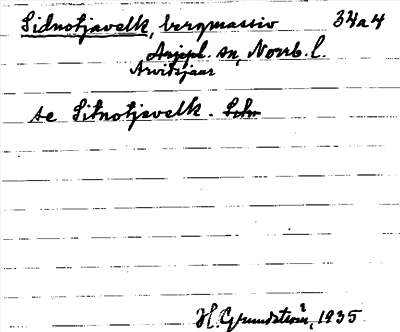 Sidnotjavelk, bergmassiv 34a4
Arjepl. sn, Norrb. l.
Arvidsjaur
se Sitnotjevelk.
H. Grundström, 1935